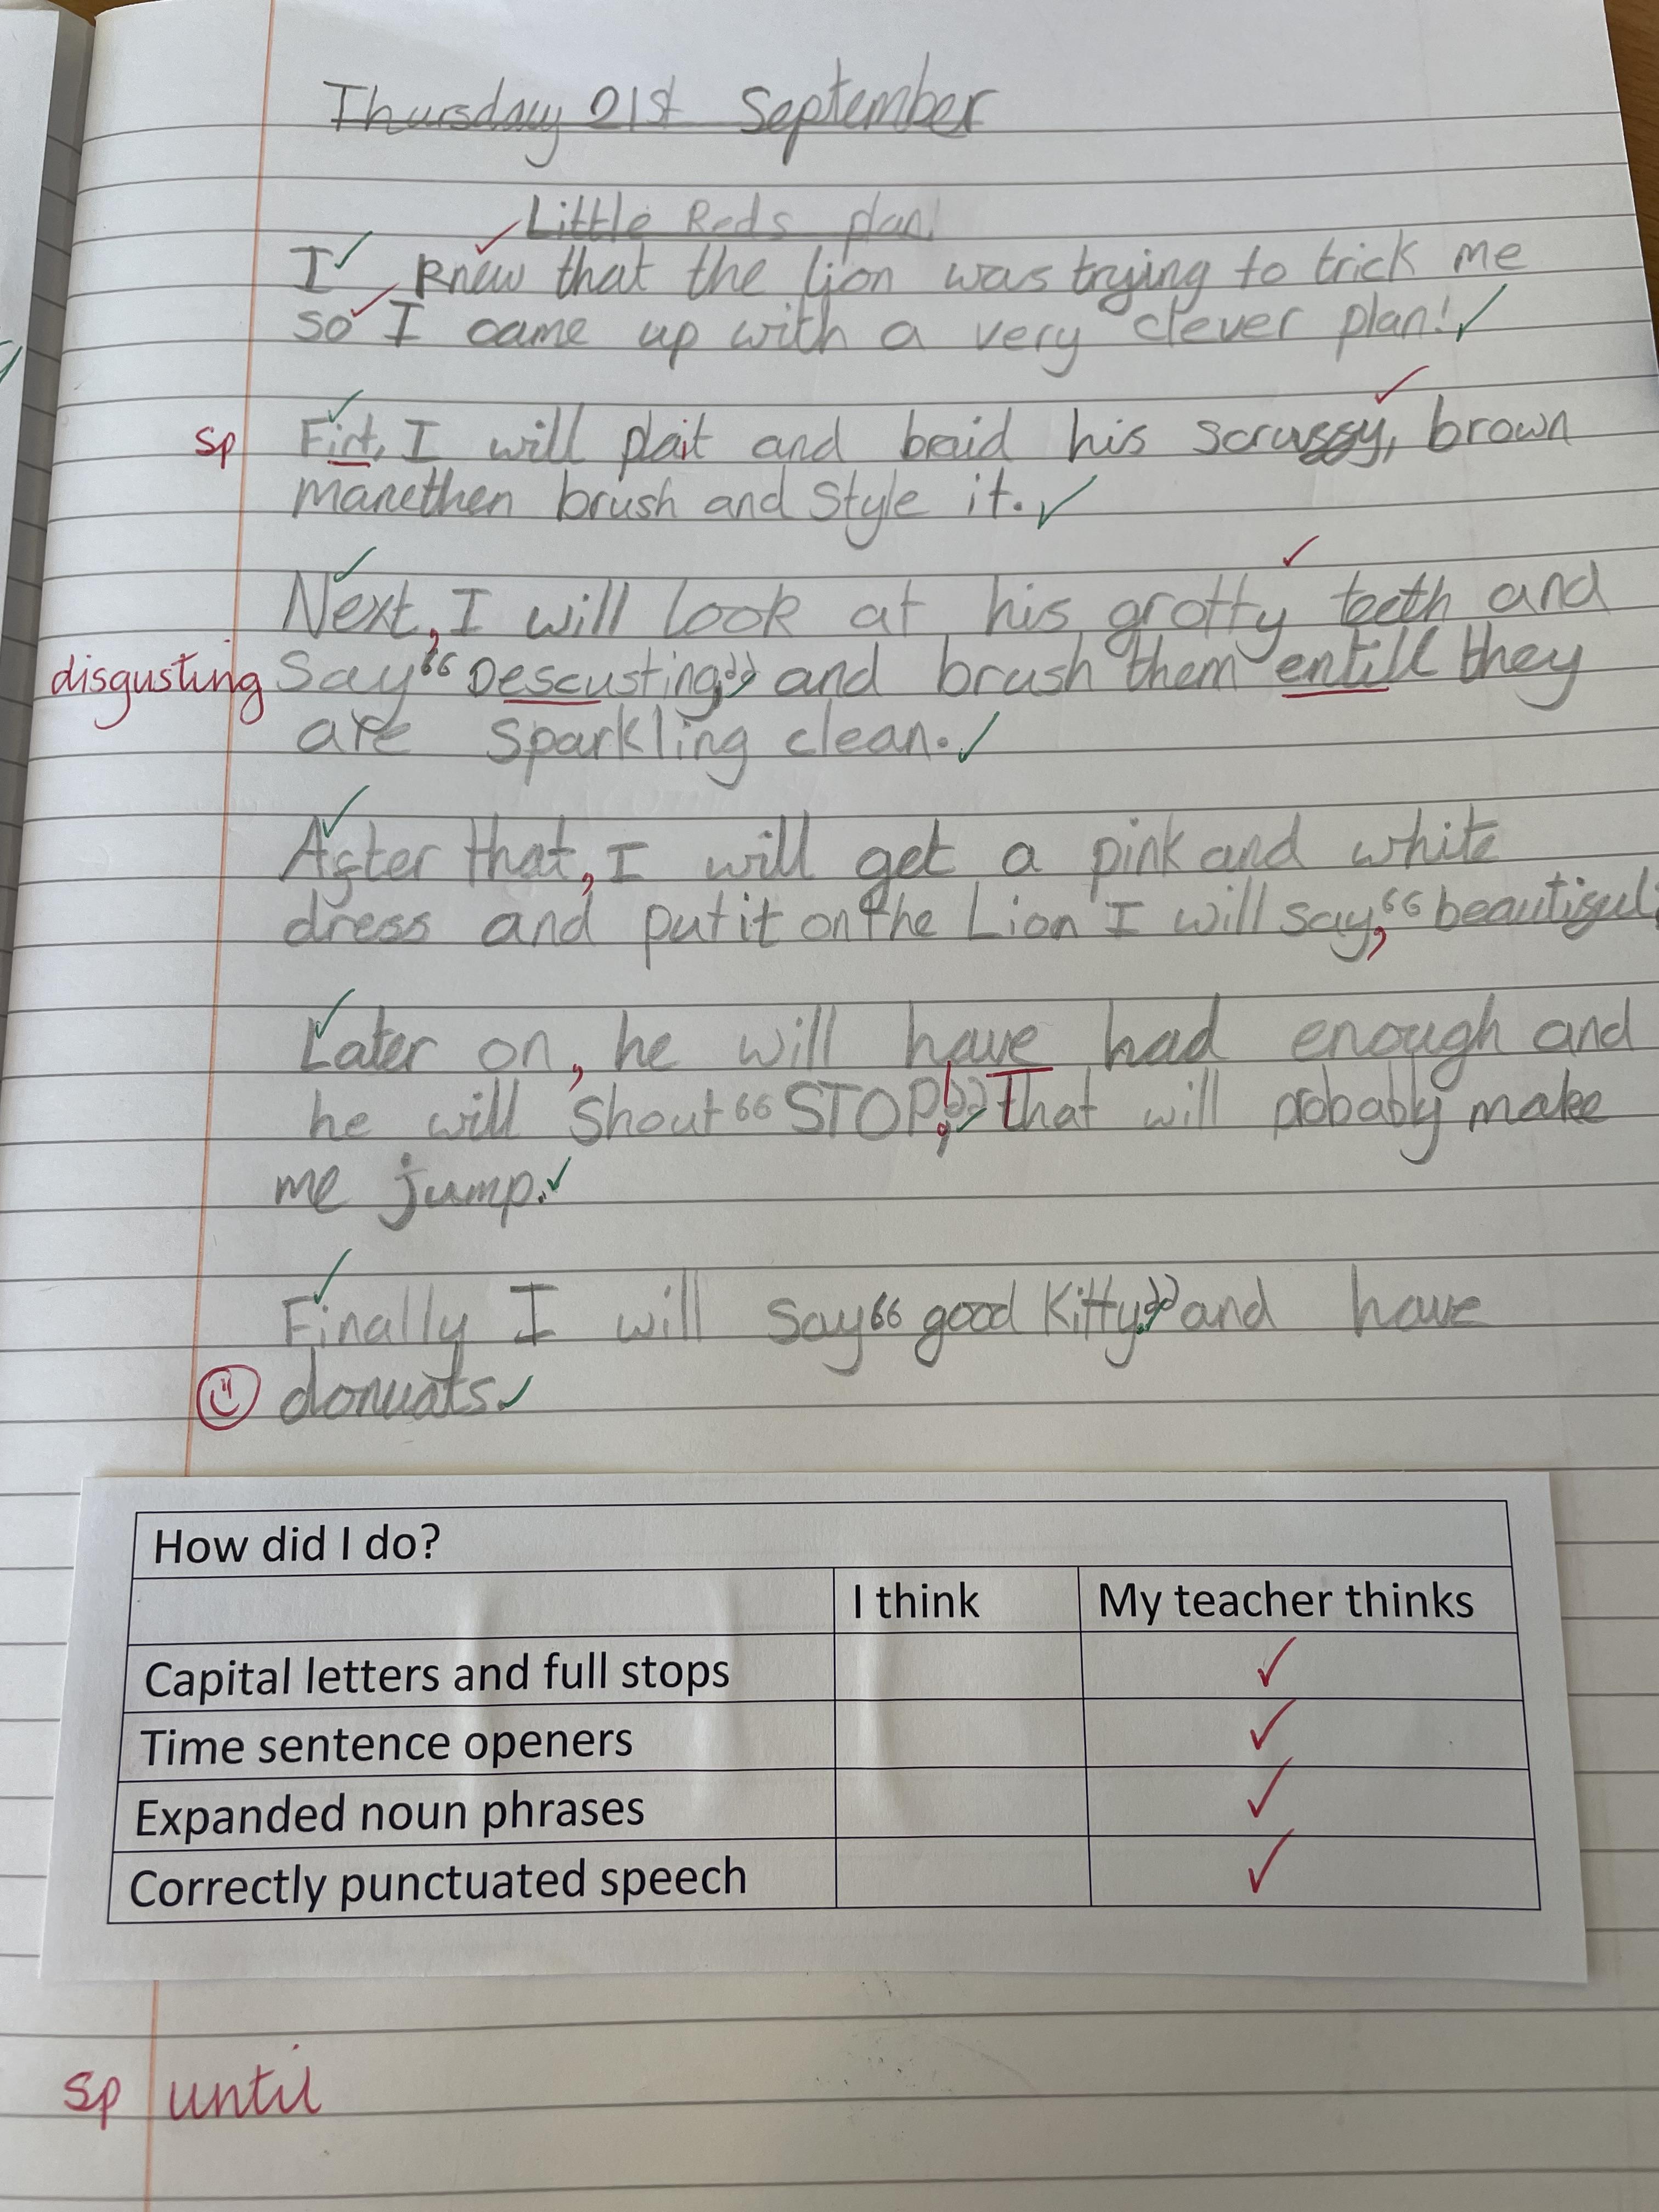 Thursday 21st September
Little Reds plan!
I knew that the lion was trying to trick me
so I came up with a very clever plan!
sp Firt, I will plait and braid his scruffy, brown
manethen brush and style it.
Next, I will look at his grotty teeth and
disgusting Say “Descusting,” and brush them entill they
are sparkling clean.
After that, I will get a pink and white
dress and put it on the Lion I will say, “beautiful
Later on, he will have had enough and
he will shout “STOP!” That will probably make
me jump.
Finally I will say “good Kitty.” and have
donuats.
How did I do?
I think My teacher thinks
Capital letters and full stops
Time sentence openers
Expanded noun phrases
Correctly punctuated speech
sp until